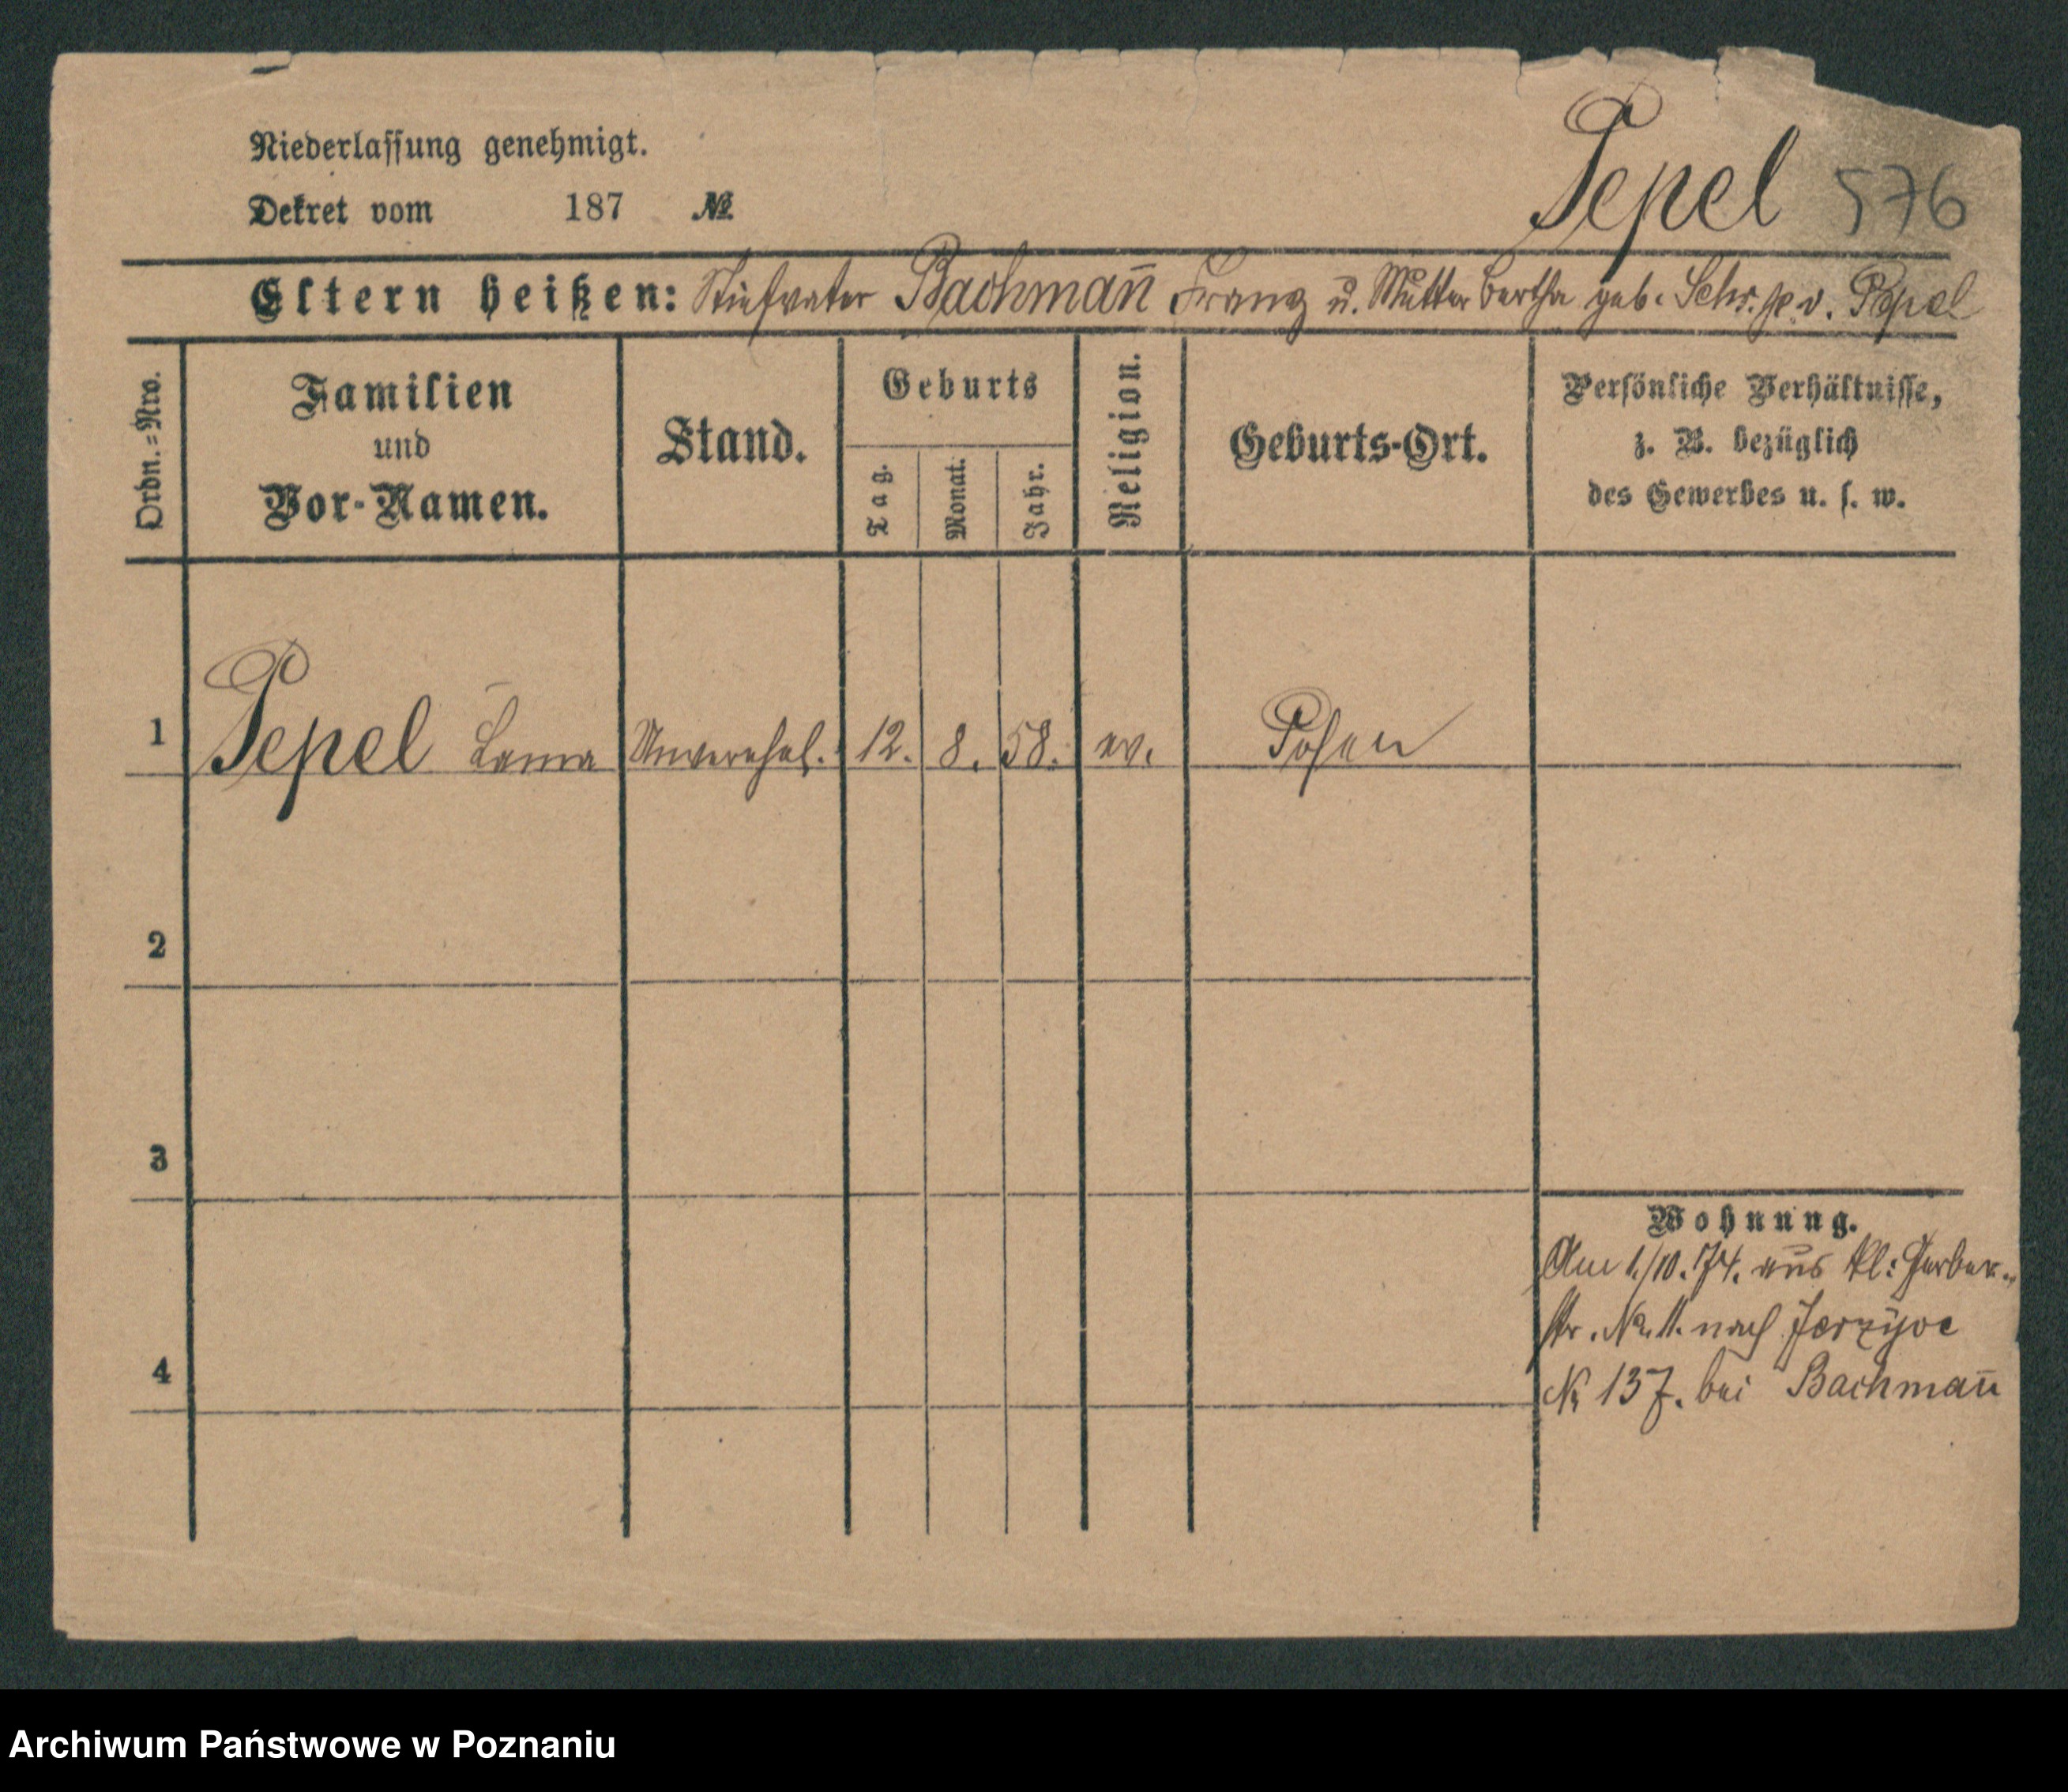 Niederlassung genehmigt.
Dekret vom 187 №
Pepel 576
Eltern heißen: Stiefvater Bachman̅ Franz u. Mutter Bertha geb. v. Pepel
Ordn.=Nro.
Familien und Vor-Namen.
Stand.
Geburts
Tag.
Monat.
Jahr.
Religion.
Geburts-Ort.
Persönliche Verhältnisse,
z. B. bezüglich
des Gewerbes u. s. w.
1 Pepel Unverehel. 12. 8. 58. ev. Posen
2
3
4
Wohnung.
Am 1./10. 74. aus kl: Gerber-
str. No. 11. nach Jerzyce
№ 137. bei Bachman̅
Archiwum Państwowe w Poznaniu